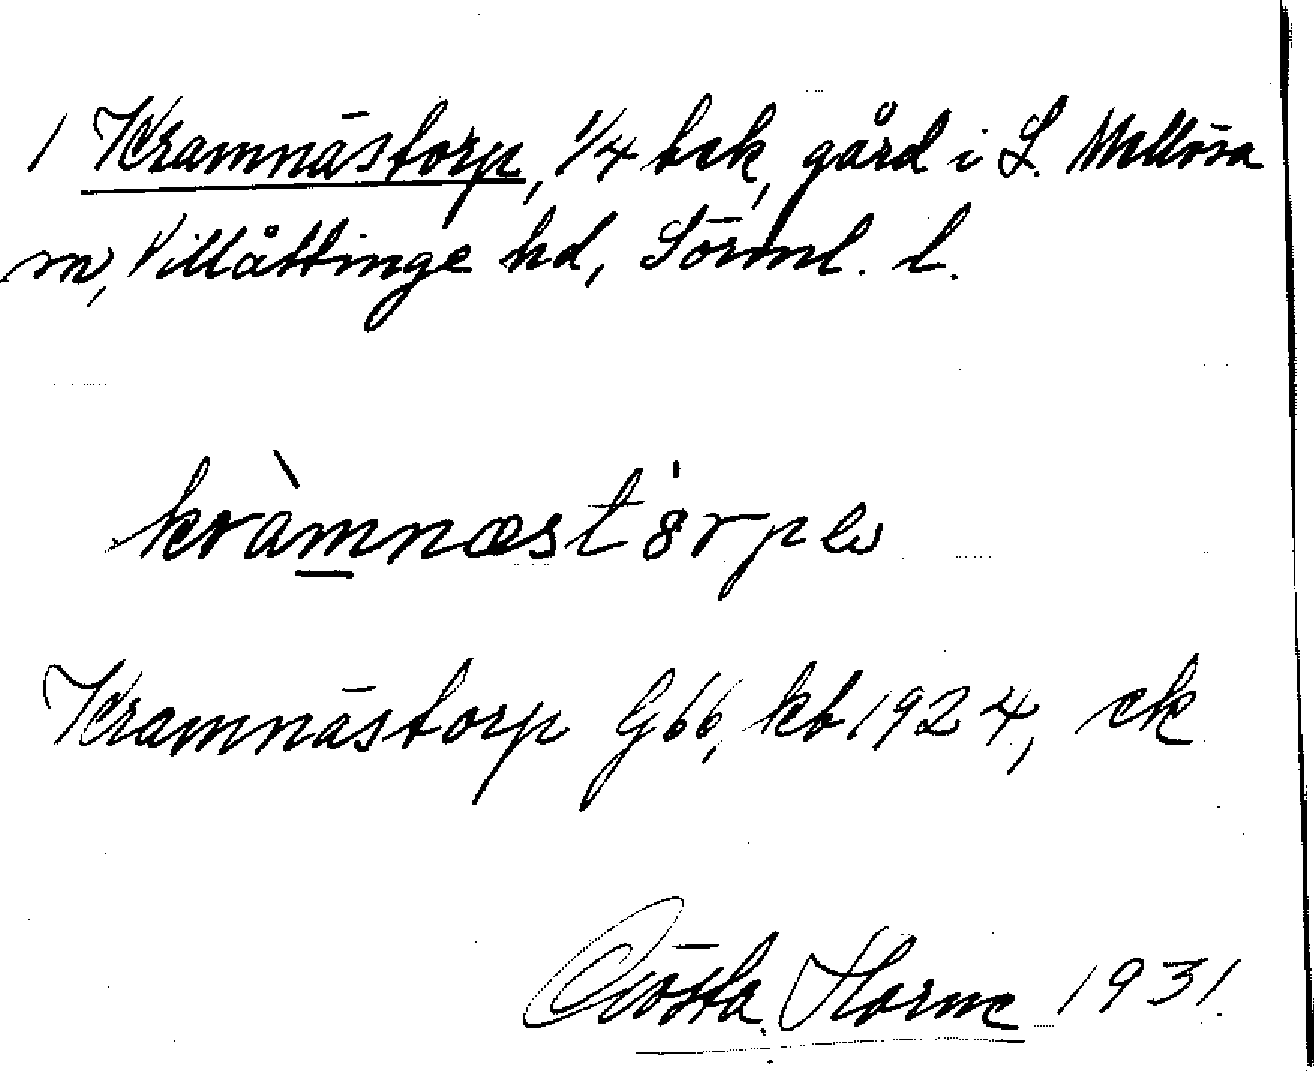 1 Kramnästorp, 1/4 bek, gård i L. Mellösa
sn, Villåttinge hd, Sörml. l.
kràmnæst
Kramnästorp G66, kb 1924, ek
Gösta Horne 1931.